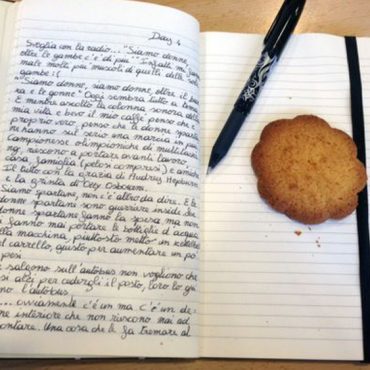 Day 4
Sveglia con la radio... "Siamo donne,
oltre le gambe c'è di più" Infatti mi fanno
male molto più muscoli di quelli delle
gambe :(
"Siamo donne, siamo donne, oltre il bar
ra e le gonne" Oggi sembra tutto a tema
E mentre ascolto la colonna sonora della
mia vita e bevo il mio caffè penso che è
proprio vero: penso che le donne sparta
ne hanno sul serio una marcia in più.
Campionesse olimpioniche di multitaskin
ng, riescono a portare avanti lavoro
casa, famiglia (pelosi compresi) e amiche
Il tutto con la grazia di Audrey Hepburn
e la grinta di Ozzy Osbourn.
Siamo spartane, non c'è altro da dire. E le
donne spartane sono guerriere inside
donne spartane fanno la spesa ma non
fanno mai portare le bottiglie d'acqua
alla macchina, piuttosto metto un
al carrello, giusto per aumentare un po'
pesi.
e salgono sull'autobus non vogliono che
si alzi per cedergli il posto, loro lo gui
no l'autobus.
... ovviamente c'è un ma c'è un de
ne interiore che non riescono mai ad
ontare. Una cosa che le fa tremare al